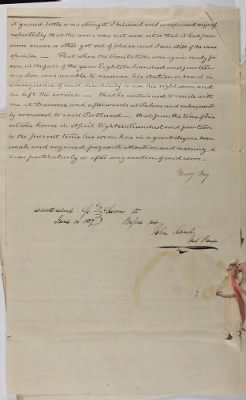 it gained little or no strength, I believed and expressed myself
repeatedly that the arm was not well set or that it had from
some cause or other got out of place and I am still of the same
opinion — That when the Constitution was again ready for
sea in the year of the year Eighteen hundred and fourteen
my son was unable to resume his station on board in
consequence of said disability in his right arm and
he left the service — that he continued to reside with
me at Danvers and afterwards at Salem and subsequently
removed to said Portland — that from the time of his
return home in April Eighteen hundred and fourteen
to the present time his arm has in a great degree been
weak and required frequent attention and nursing, &
more particularly so after any exertion of said arm —
Mary
Before me
John